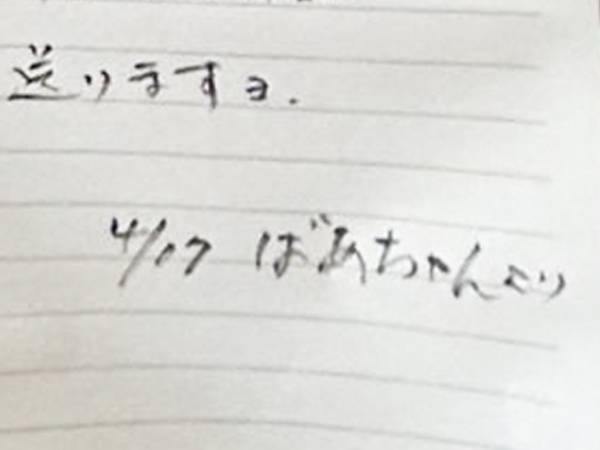 送りますョ.
4/17 ばあちゃんより